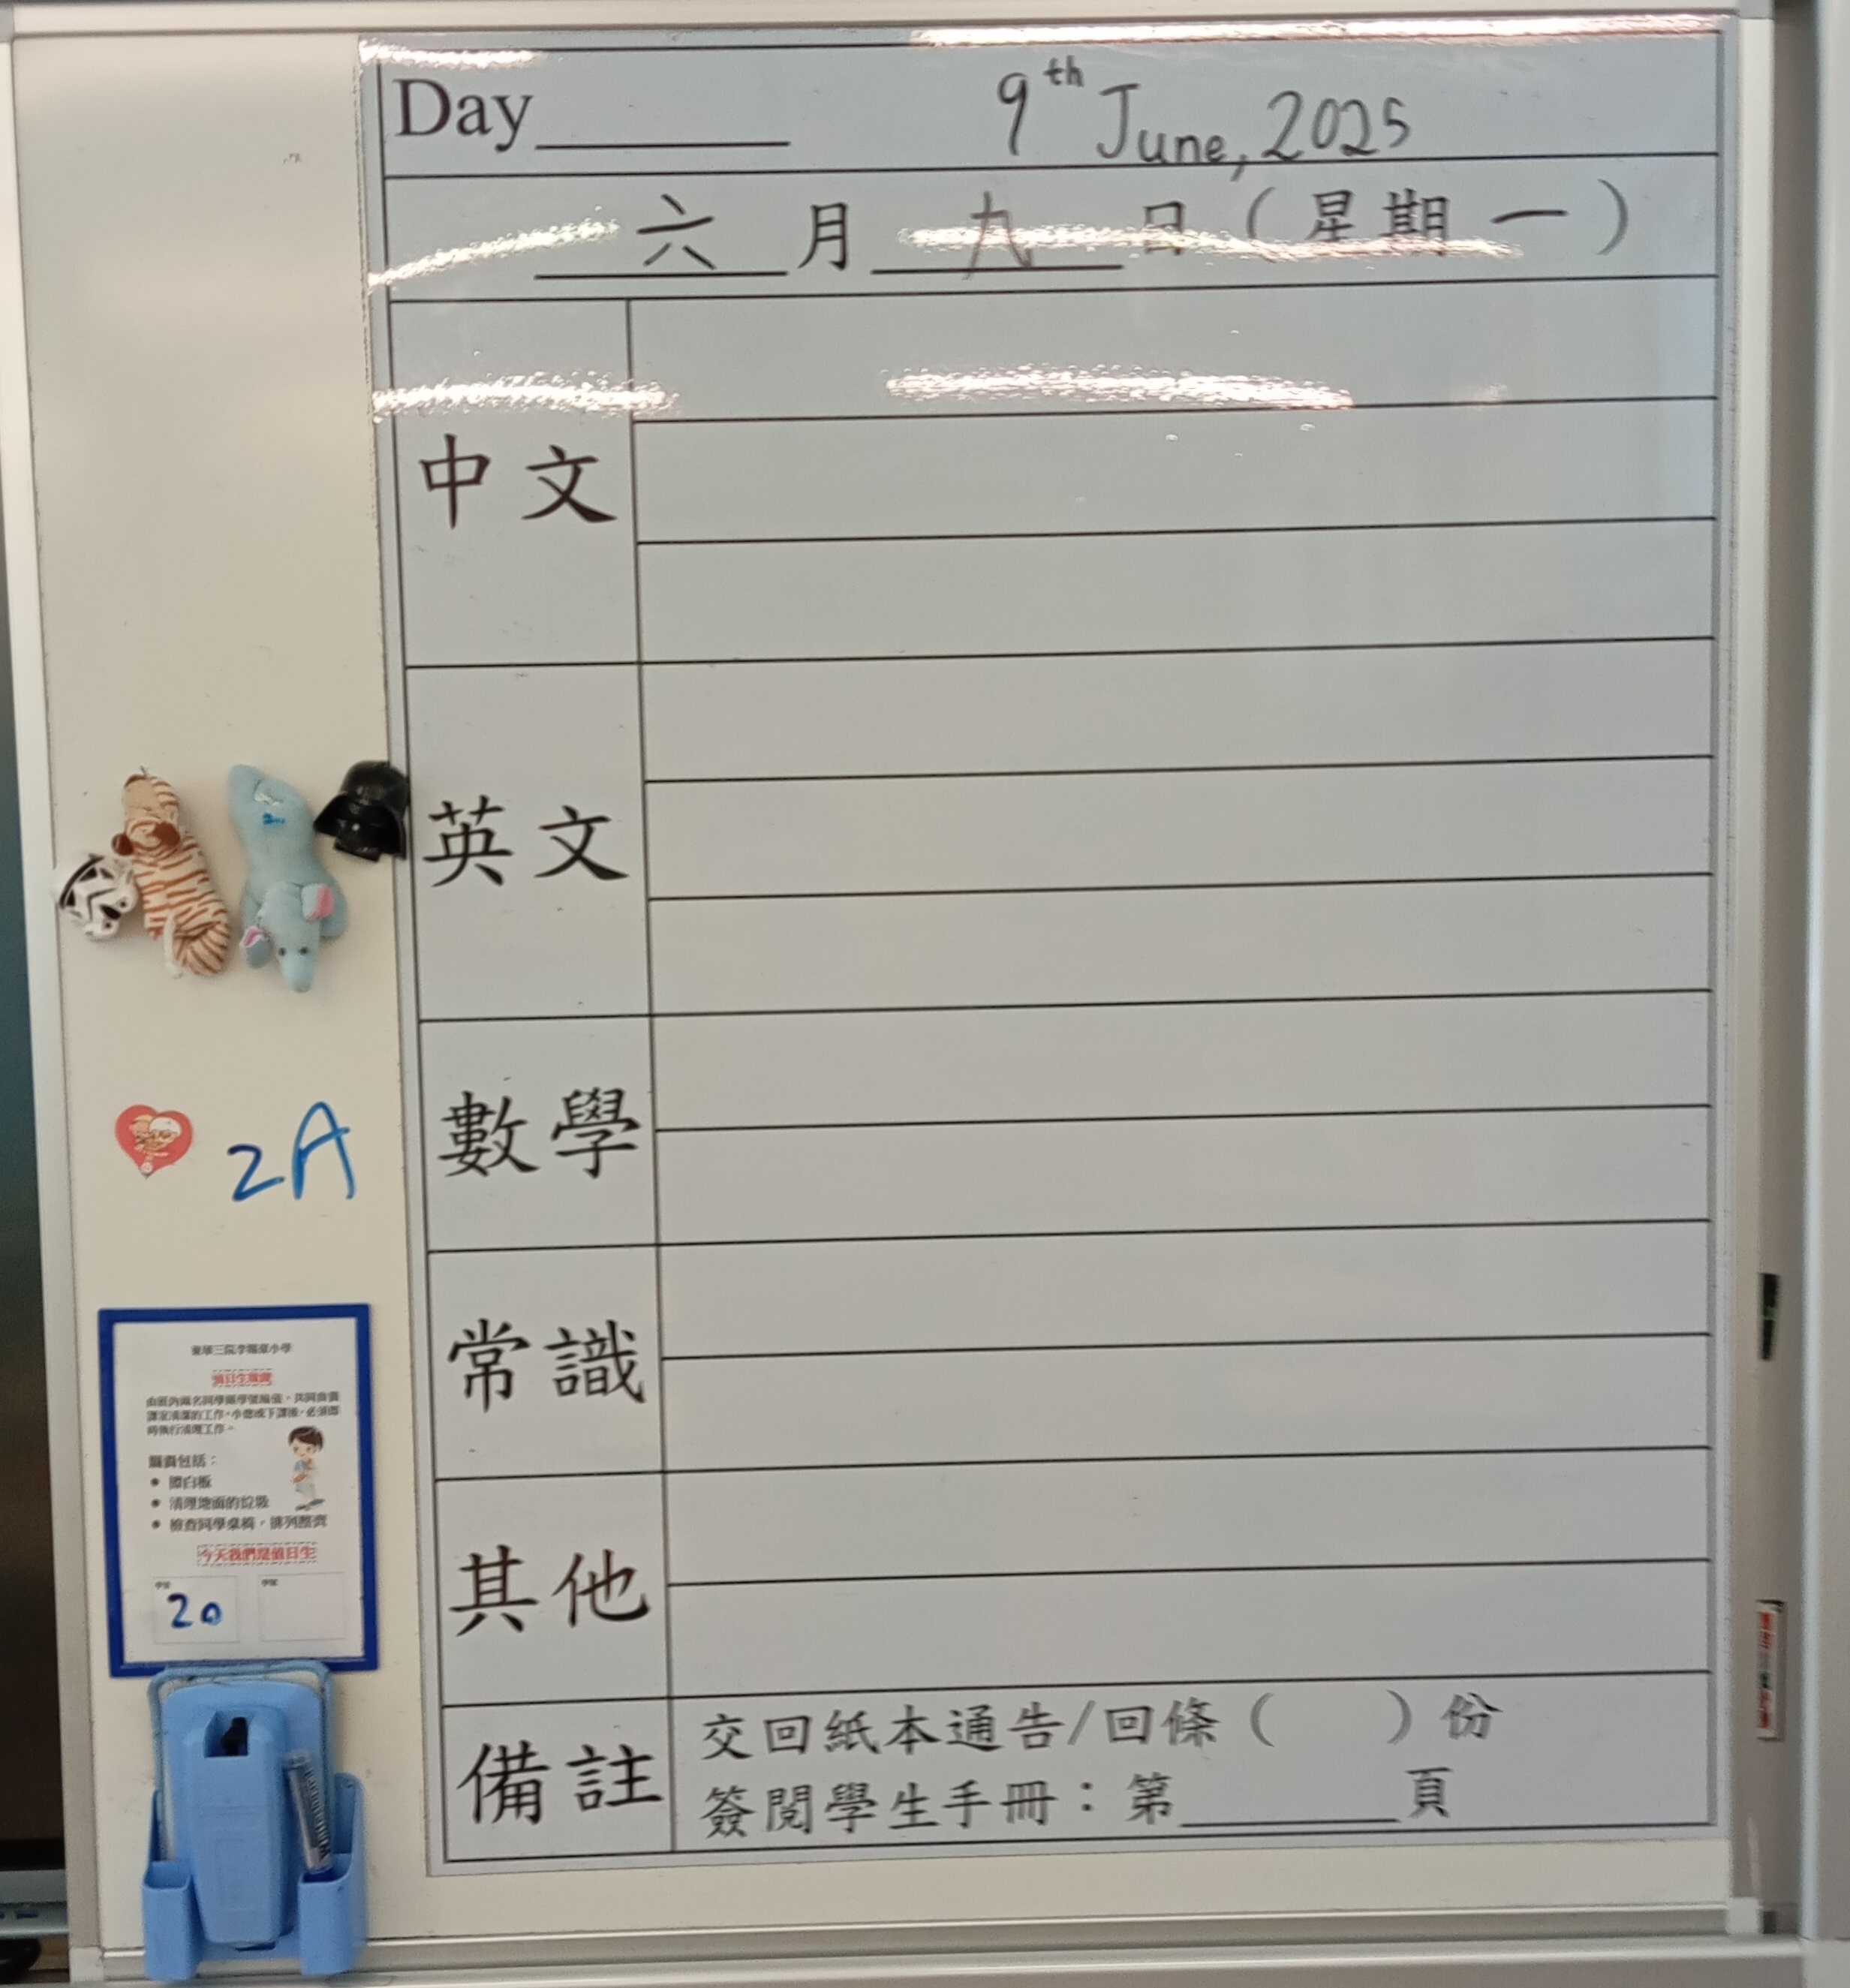 Day______ 9th June, 2025
六 月 九 日 ( 星 期 一 )
中文
英文
數學
常識
其他
備註
交回紙本通告/回條 (　　) 份
簽閱學生手冊：第______頁
2A
由班內兩名同學順學號輪值，共同負責
課室清潔的工作。小息或下課後，必須即
時執行清理工作。
職責包括：
• 擦白板
• 清理地面的垃圾
• 檢查同學桌椅，排列整齊
今天我們是值日生
學號 學號
20